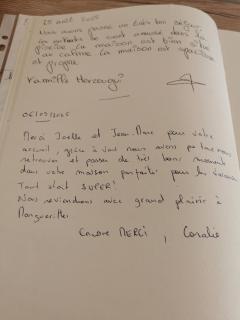 25 août 2025
Nous avons passé un très bon séjour
les enfants se sont amusés dans la
piscine La maison est bien située
au calme La maison est spacieuse
et propre
Famille Herzougui
06/09/2025
Merci Joelle et Jean-Marc pour votre
accueil, grâce à vous nous avons pu tous nous
retrouver et passer de très bons moments
dans votre maison parfaite pour les vacances
Tout était SUPER!
Nous reviendrons avec grand plaisir à
Encore MERCI, Coralie